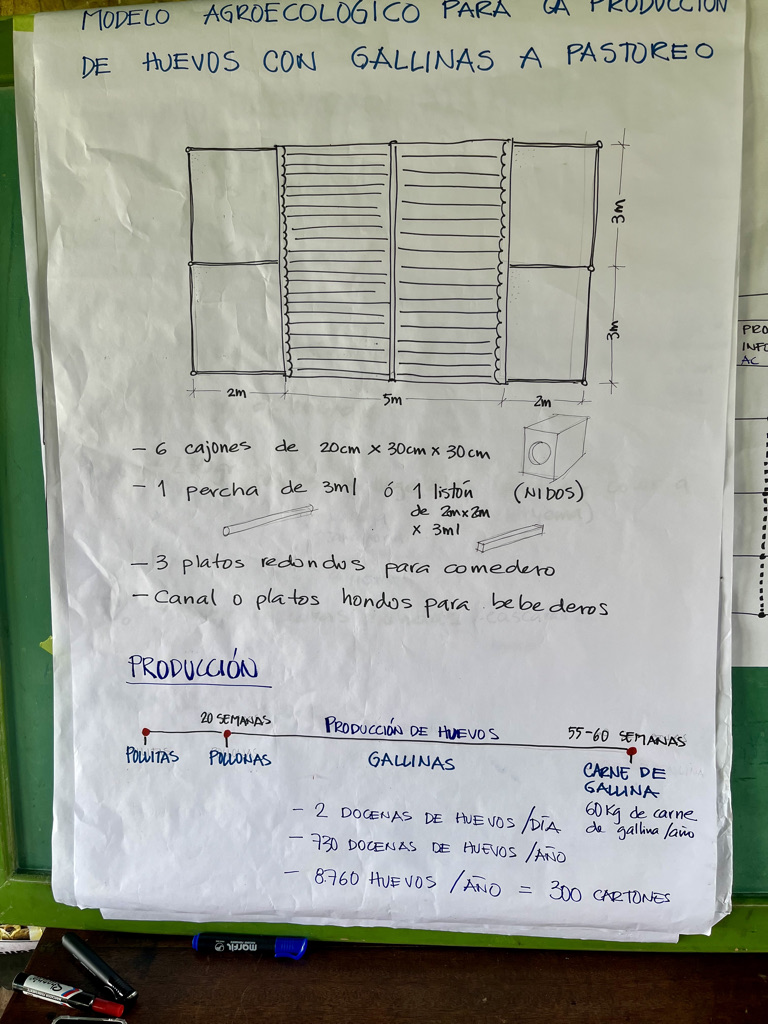 MODELO AGROECOLOGICO PARA LA PRODUCCION
DE HUEVOS CON GALLINAS A PASTOREO
3m
3m
2m
5m
2m
- 6 cajones de 20cm x 30cm x 30cm
- 1 percha de 3ml ó 1 listón
de 2m x 2m
x 3ml
(NIDOS)
- 3 platos redondos para comedero
- Canal o platos hondos para bebederos
PRODUCCIÓN
20 SEMANAS
PRODUCCIÓN DE HUEVOS
55-60 SEMANAS
POLLITAS
POLLONAS
GALLINAS
CARNE DE
GALLINA
60Kg de carne
de gallina/año
- 2 DOCENAS DE HUEVOS /DÍA
- 730 DOCENAS DE HUEVOS /AÑO
- 8.760 HUEVOS /AÑO = 300 CARTONES
PRO
INFO
AC
marfil